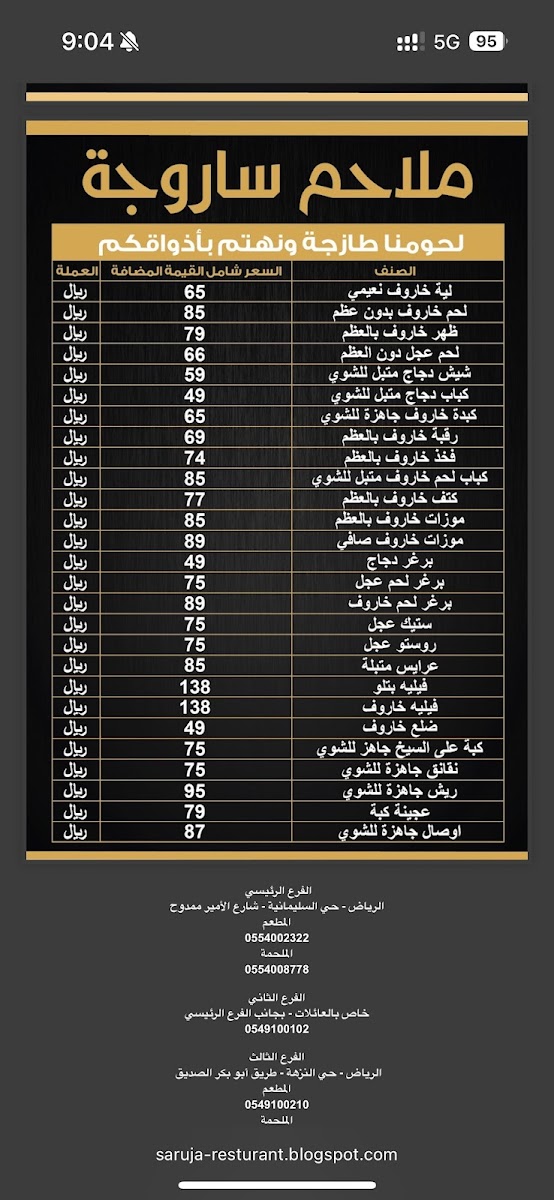 9:04
5G
95
ملاحم ساروجة
لحومنا طازجة ونهتم بأذواقكم
الصنف السعر شامل القيمة المضافة العملة
لية خاروف نعيمي 65 ريال
لحم خاروف بدون عظم 85 ريال
ظهر خاروف بالعظم 79 ريال
لحم عجل دون العظم 66 ريال
شيش دجاج متبل للشوي 59 ريال
كباب دجاج متبل للشوي 49 ريال
كبدة خاروف جاهزة للشوي 65 ريال
رقبة خاروف بالعظم 69 ريال
فخذ خاروف بالعظم 74 ريال
كباب لحم خاروف متبل للشوي 85 ريال
كتف خاروف بالعظم 77 ريال
موزات خاروف بالعظم 85 ريال
موزات خاروف صافي 89 ريال
برغر دجاج 49 ريال
برغر لحم عجل 75 ريال
برغر لحم خاروف 89 ريال
ستيك عجل 75 ريال
روستو عجل 75 ريال
عرايس متبلة 85 ريال
فيليه بتلو 138 ريال
فيليه خاروف 138 ريال
ضلع خاروف 49 ريال
كبة على السيخ جاهز للشوي 75 ريال
نقانق جاهزة للشوي 75 ريال
ريش جاهزة للشوي 95 ريال
عجينة كبة 79 ريال
اوصال جاهزة للشوي 87 ريال
الفرع الرئيسي
الرياض - حي السليمانية - شارع الأمير ممدوح
المطعم
0554002322
الملحمة
0554008778
الفرع الثاني
خاص بالعائلات - بجانب الفرع الرئيسي
0549100102
الفرع الثالث
الرياض - حي النزهة - طريق ابو بكر الصديق
المطعم
0549100210
الملحمة
saruja-resturant.blogspot.com